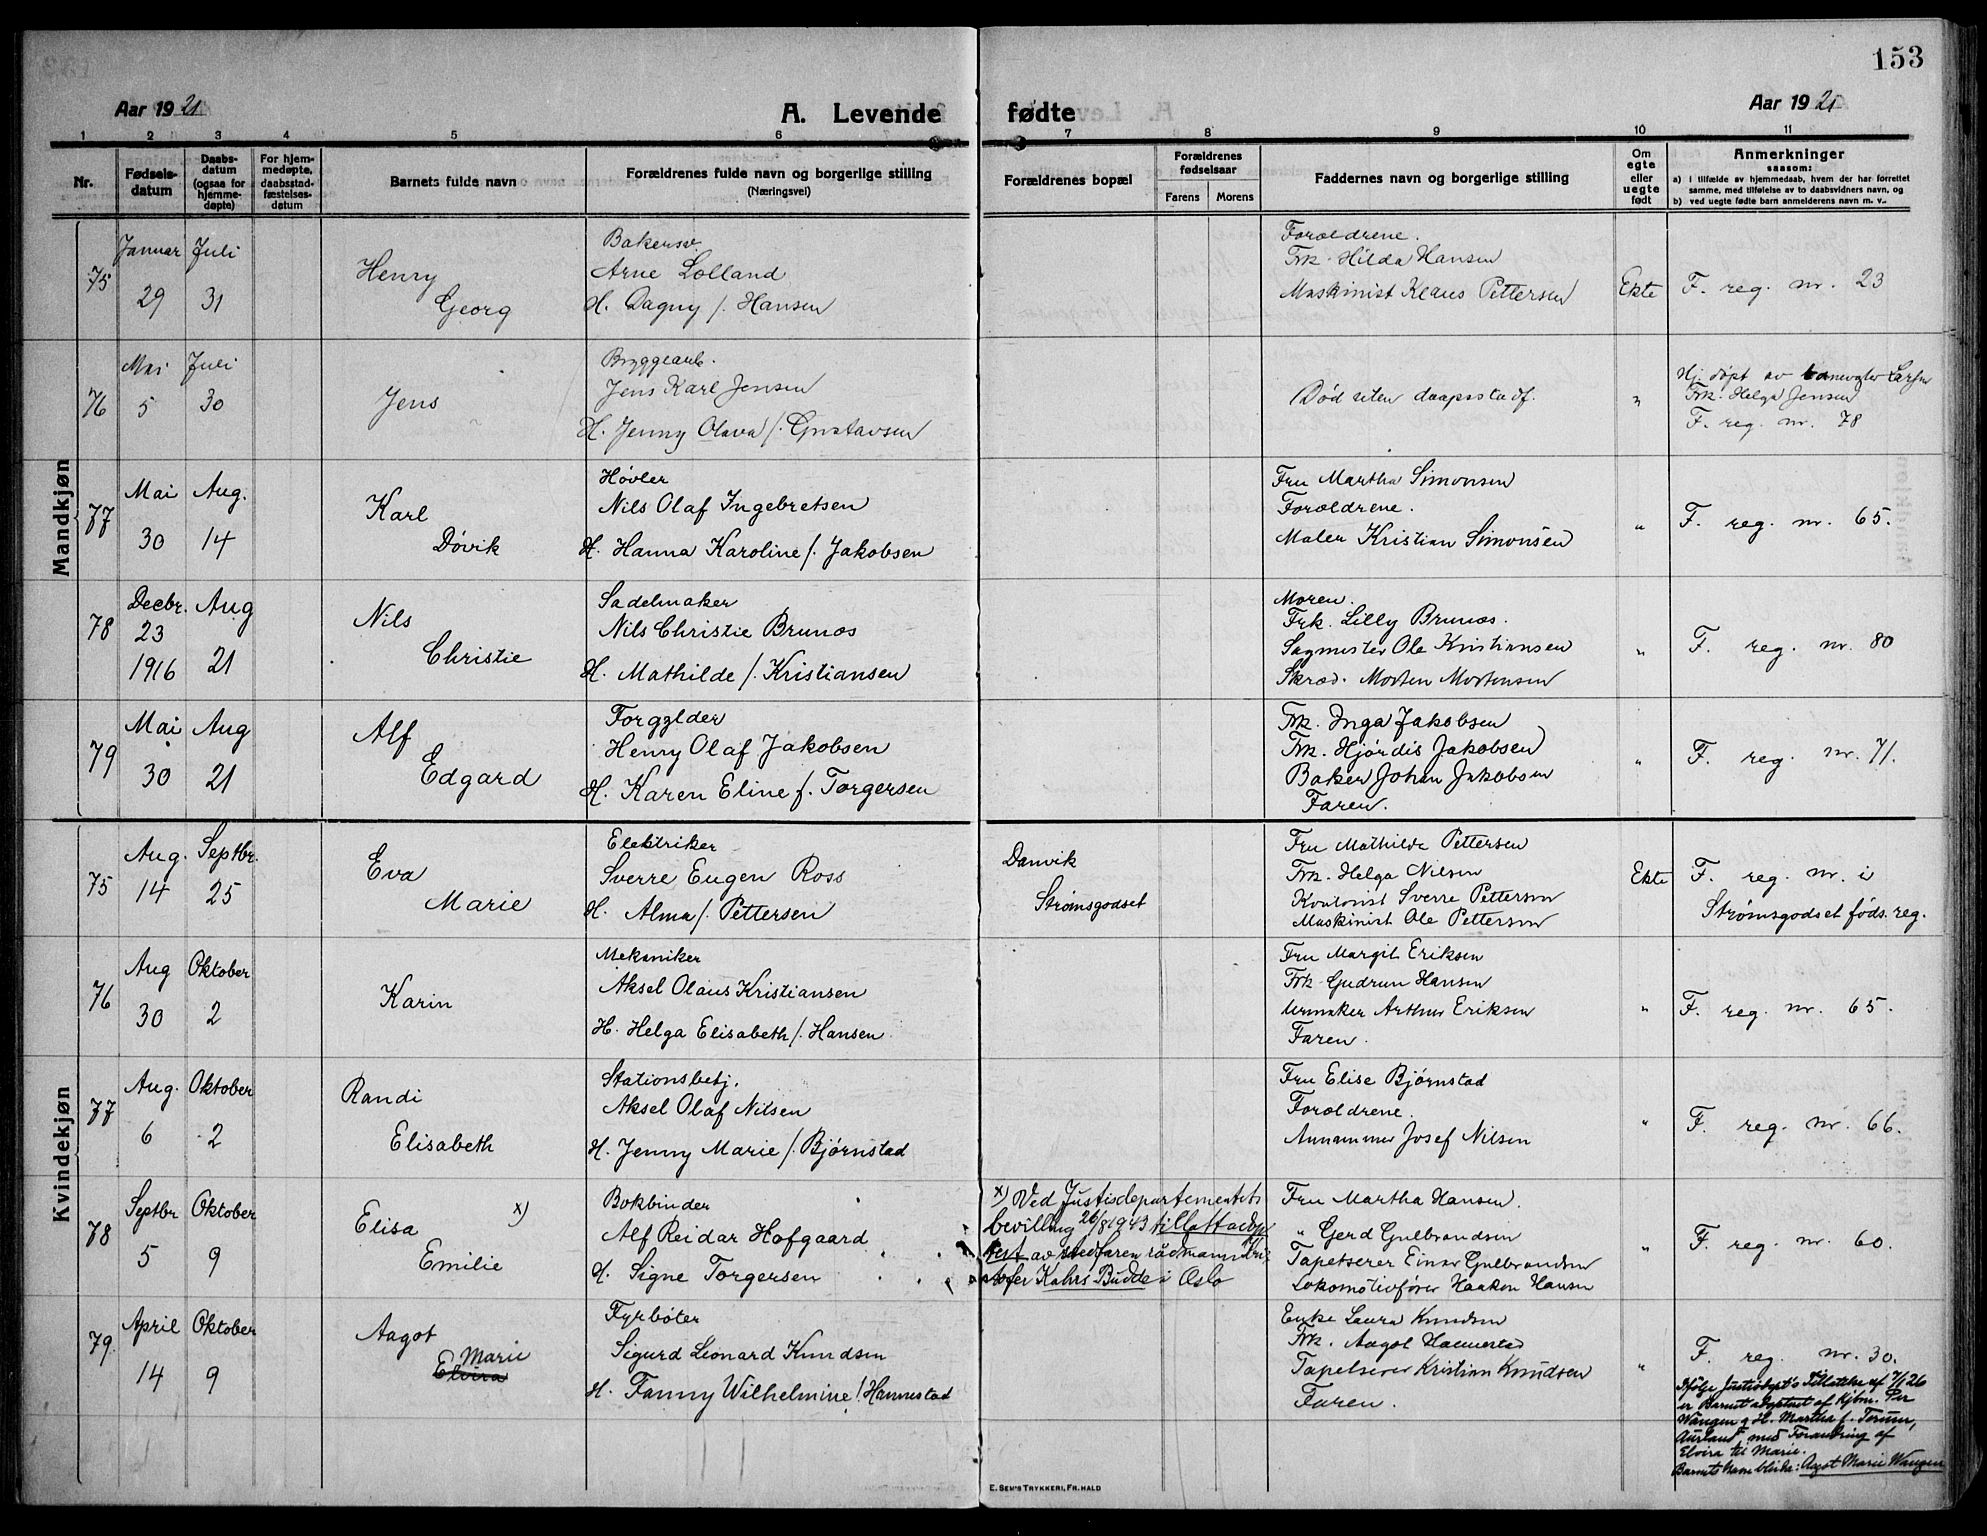 153
Aar 1921
A. Levende
fødte
Aar 1921
1 2 3 4 5 6 7 8 9 10 11
Nr.
Fødsels-
datum
Daabs-
datum
(ogsaa for
hjemme-
døpte)
For hjem-
medøpte,
daabsstad-
fæstelses-
datum
Barnets fulde navn
Forældrenes fulde navn og borgerlige stilling
(Næringsvei)
Forældrenes bopæl
Forældrenes
fødselsaar
Farens Morens
Faddernes navn og borgerlige stilling
Om
egte
eller
uegte
født
Anmerkninger
saasom:
a) i tilfælde av hjemmedaab, hvem der har forrettet
samme, med tilføielse av to daabsvidners navn, og
b) ved uegte fødte barn anmelderens navn m. v.
Mandkjøn
75
Januar Juli
29 31
Henry
Georg
Bakersv.
Arne Lolland
H. Dagny f. Hansen
Forældrene.
Frk. Hilda Hansen
Maskinist Klaus Pettersen
Ekte
F. reg. nr. 23
76
Mai Juli
5 30
Jens
Bryggearb.
Jens Karl Jensen
H. Jenny Olava f. Gustavsen
Død uten daapsstadf.
"
Hj. døpt av Larsen
Frk. Helga Jensen
F. reg. nr. 78
77
Mai Aug.
30 14
Karl
Døvik
Høvler
Nils Olaf Ingebretsen
H. Hanna Karoline f. Jakobsen
Fru Martha Simonsen
Forældrene.
Maler Kristian Simonsen
"
F. reg. nr. 65.
78
Decbr. Aug
23
1916 21
Nils
Christie
Sadelmaker
Nils Christie Brunæs
H. Mathilde f. Kristiansen
Moren.
Frk. Lilly Brunæs.
Sagmester Ole Kristiansen
Skræd. Morten Mortensen
"
F. reg. nr. 80
79
Mai Aug
30 21
Alf
Edgard
Forgylder
Henry Olaf Jakobsen
H. Karen Eline f. Torgersen
Frk. Inga Jakobsen
Frk. Hjørdis Jakobsen
Baker Johan Jakobsen
Faren.
"
F. reg. nr. 71.
Kvindekjøn
75
Aug. Septbr.
14 25
Eva
Marie
Elektriker
Sverre Eugen Ross
H. Alma f. Pettersen
Danvik
Strømsgodset
Fru Mathilde Pettersen
Frk. Helga Nilsen
Kontorist Sverre Pettersen
Maskinist Ole Pettersen
Ekte
F. reg. nr. i
Strømsgodset føds. reg.
76
Aug Oktober
30 2
Karin
Mekaniker
Aksel Olaus Kristiansen
H. Helga Elisabeth f. Hansen
Fru Margit Eriksen
Frk. Gudrun Hansen
Urmaker Arthur Eriksen
Faren.
"
F. reg. nr. 65.
77
Aug. Oktober
6 2
Randi
Elisabeth
Stationsbetj.
Aksel Olaf Nilsen
H. Jenny Marie f. Bjørnstad
Fru Elise Bjørnstad
Forældrene.
Annammer Josef Nilsen
"
F. reg. nr. 66.
78
Septbr Oktober
5 9
Elisa x)
Emilie
Bokbinder
Alf Reidar Hofgaard
H. Signe Torgersen
x) Ved Justisdepartementets
bevilling 26/8 1943 tillatt adop
tert av stedfaren rådmann Kri-
stofer Kahrs Budde i Oslo
Fru Martha Hansen.
" Gerd Gulbrandsen
Tapetserer Einar Gulbrandsen
Lokomotivfører Haakon Hansen
"
F. reg. nr. 60.
79.
April Oktober
14 9
Aagot
Marie
Elvira
Fyrbøter
Sigurd Leonard Knudsen
H. Fanny Wilhelmine f. Hannestad
Enke Laura Knudsen
Frk. Aagot Hannestad
Tapetserer Kristian Knudsen
Faren.
"
F. reg. nr. 30.
Ifølge Justisdept's Tillatelse af 7/1 26
er Barnet adopteret af Kjbm. Per
Wangen g H. Martha f. Terum,
Aurland med Forandring af
Elvira til Marie.
Barnets Navn blir: Aagot Marie Wangen
E. SEM'S TRYKKERI, FR. HALD